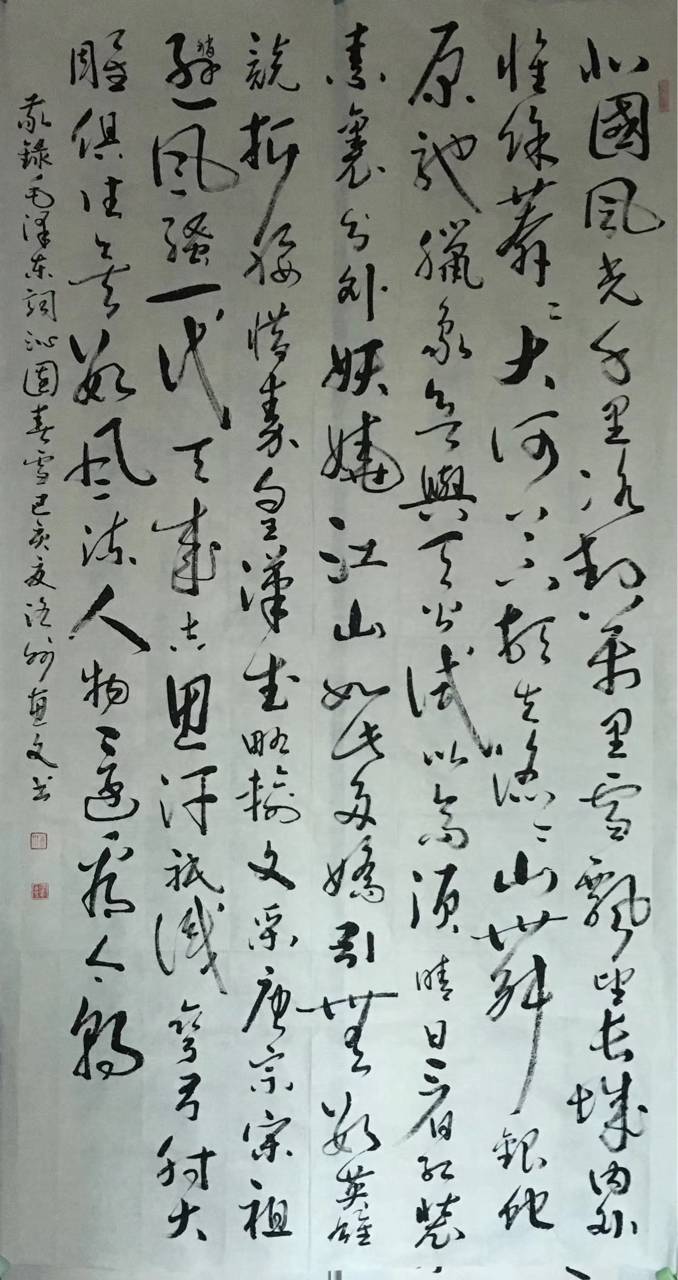 北國風光千里冰封萬里雪飄望長城内外
惟餘莽〻大河上下頓失滔〻山舞銀蛇
原馳臘象欲與天公試比高須晴日看紅裝
素裹分外妖嬈江山如此多嬌引無數英雄
競折腰惜秦皇漢武略輸文采唐宗宋祖
稍遜風騷一代天成吉思汗祇識彎弓射大
雕俱往矣數風流人物還看今朝
敬錄毛澤東詞沁園春雪己亥夏惠文书